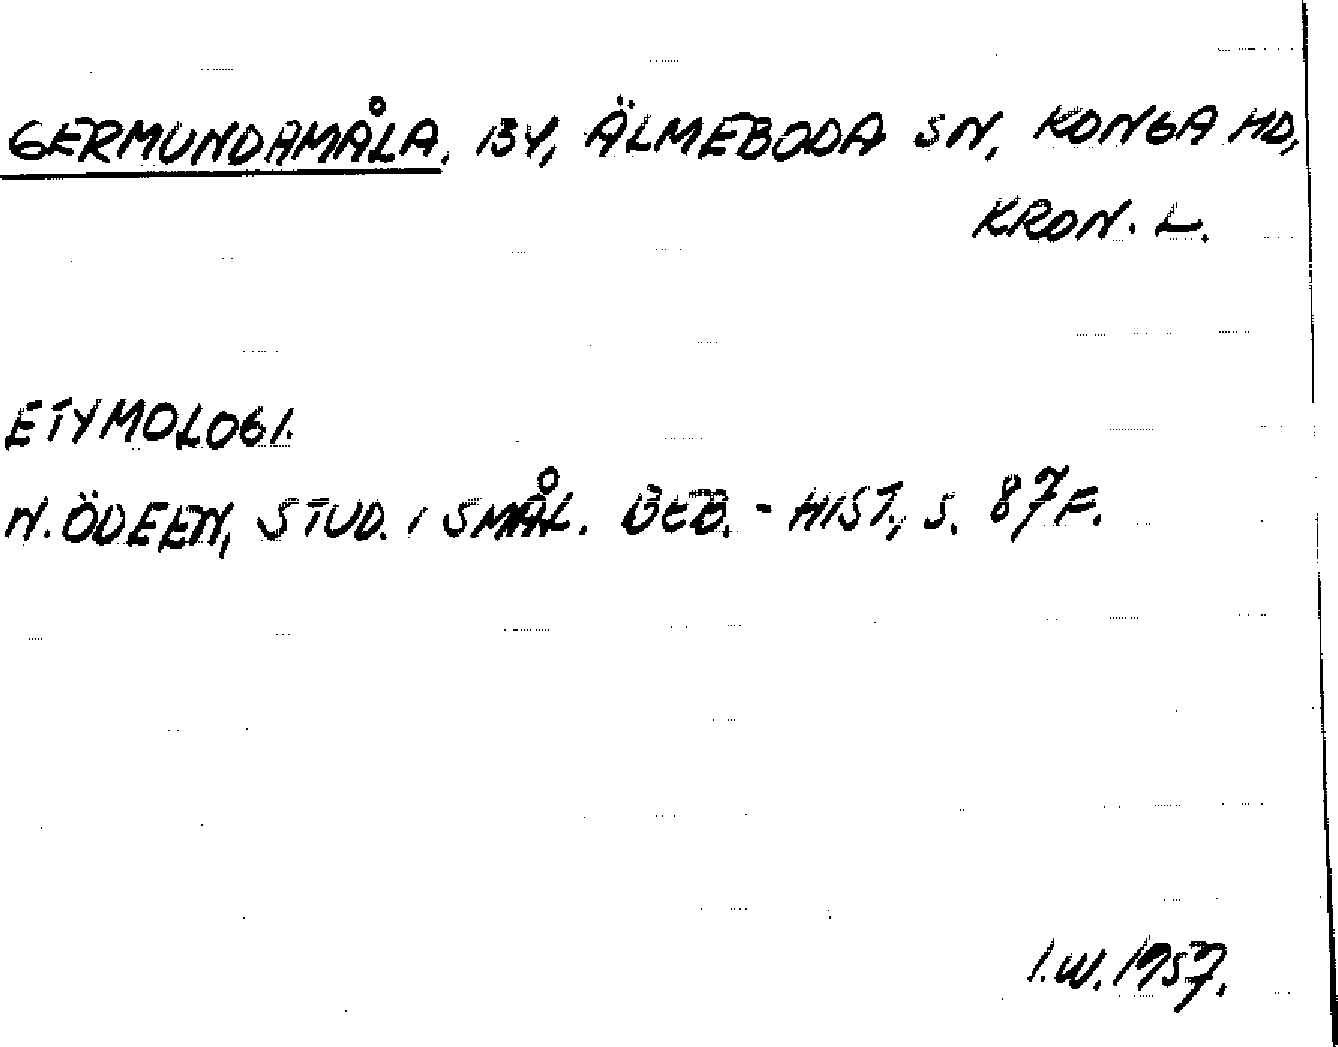 GERMUNDAMÅLA, BY, ÄLMEBODA SN, KONGA HD,
KRON. L.
ETYMOLOGI.
N. ÖDEEN, STUD. I SMÅL. BEB. - HIST., S. 87 F.
I.W. 1957.